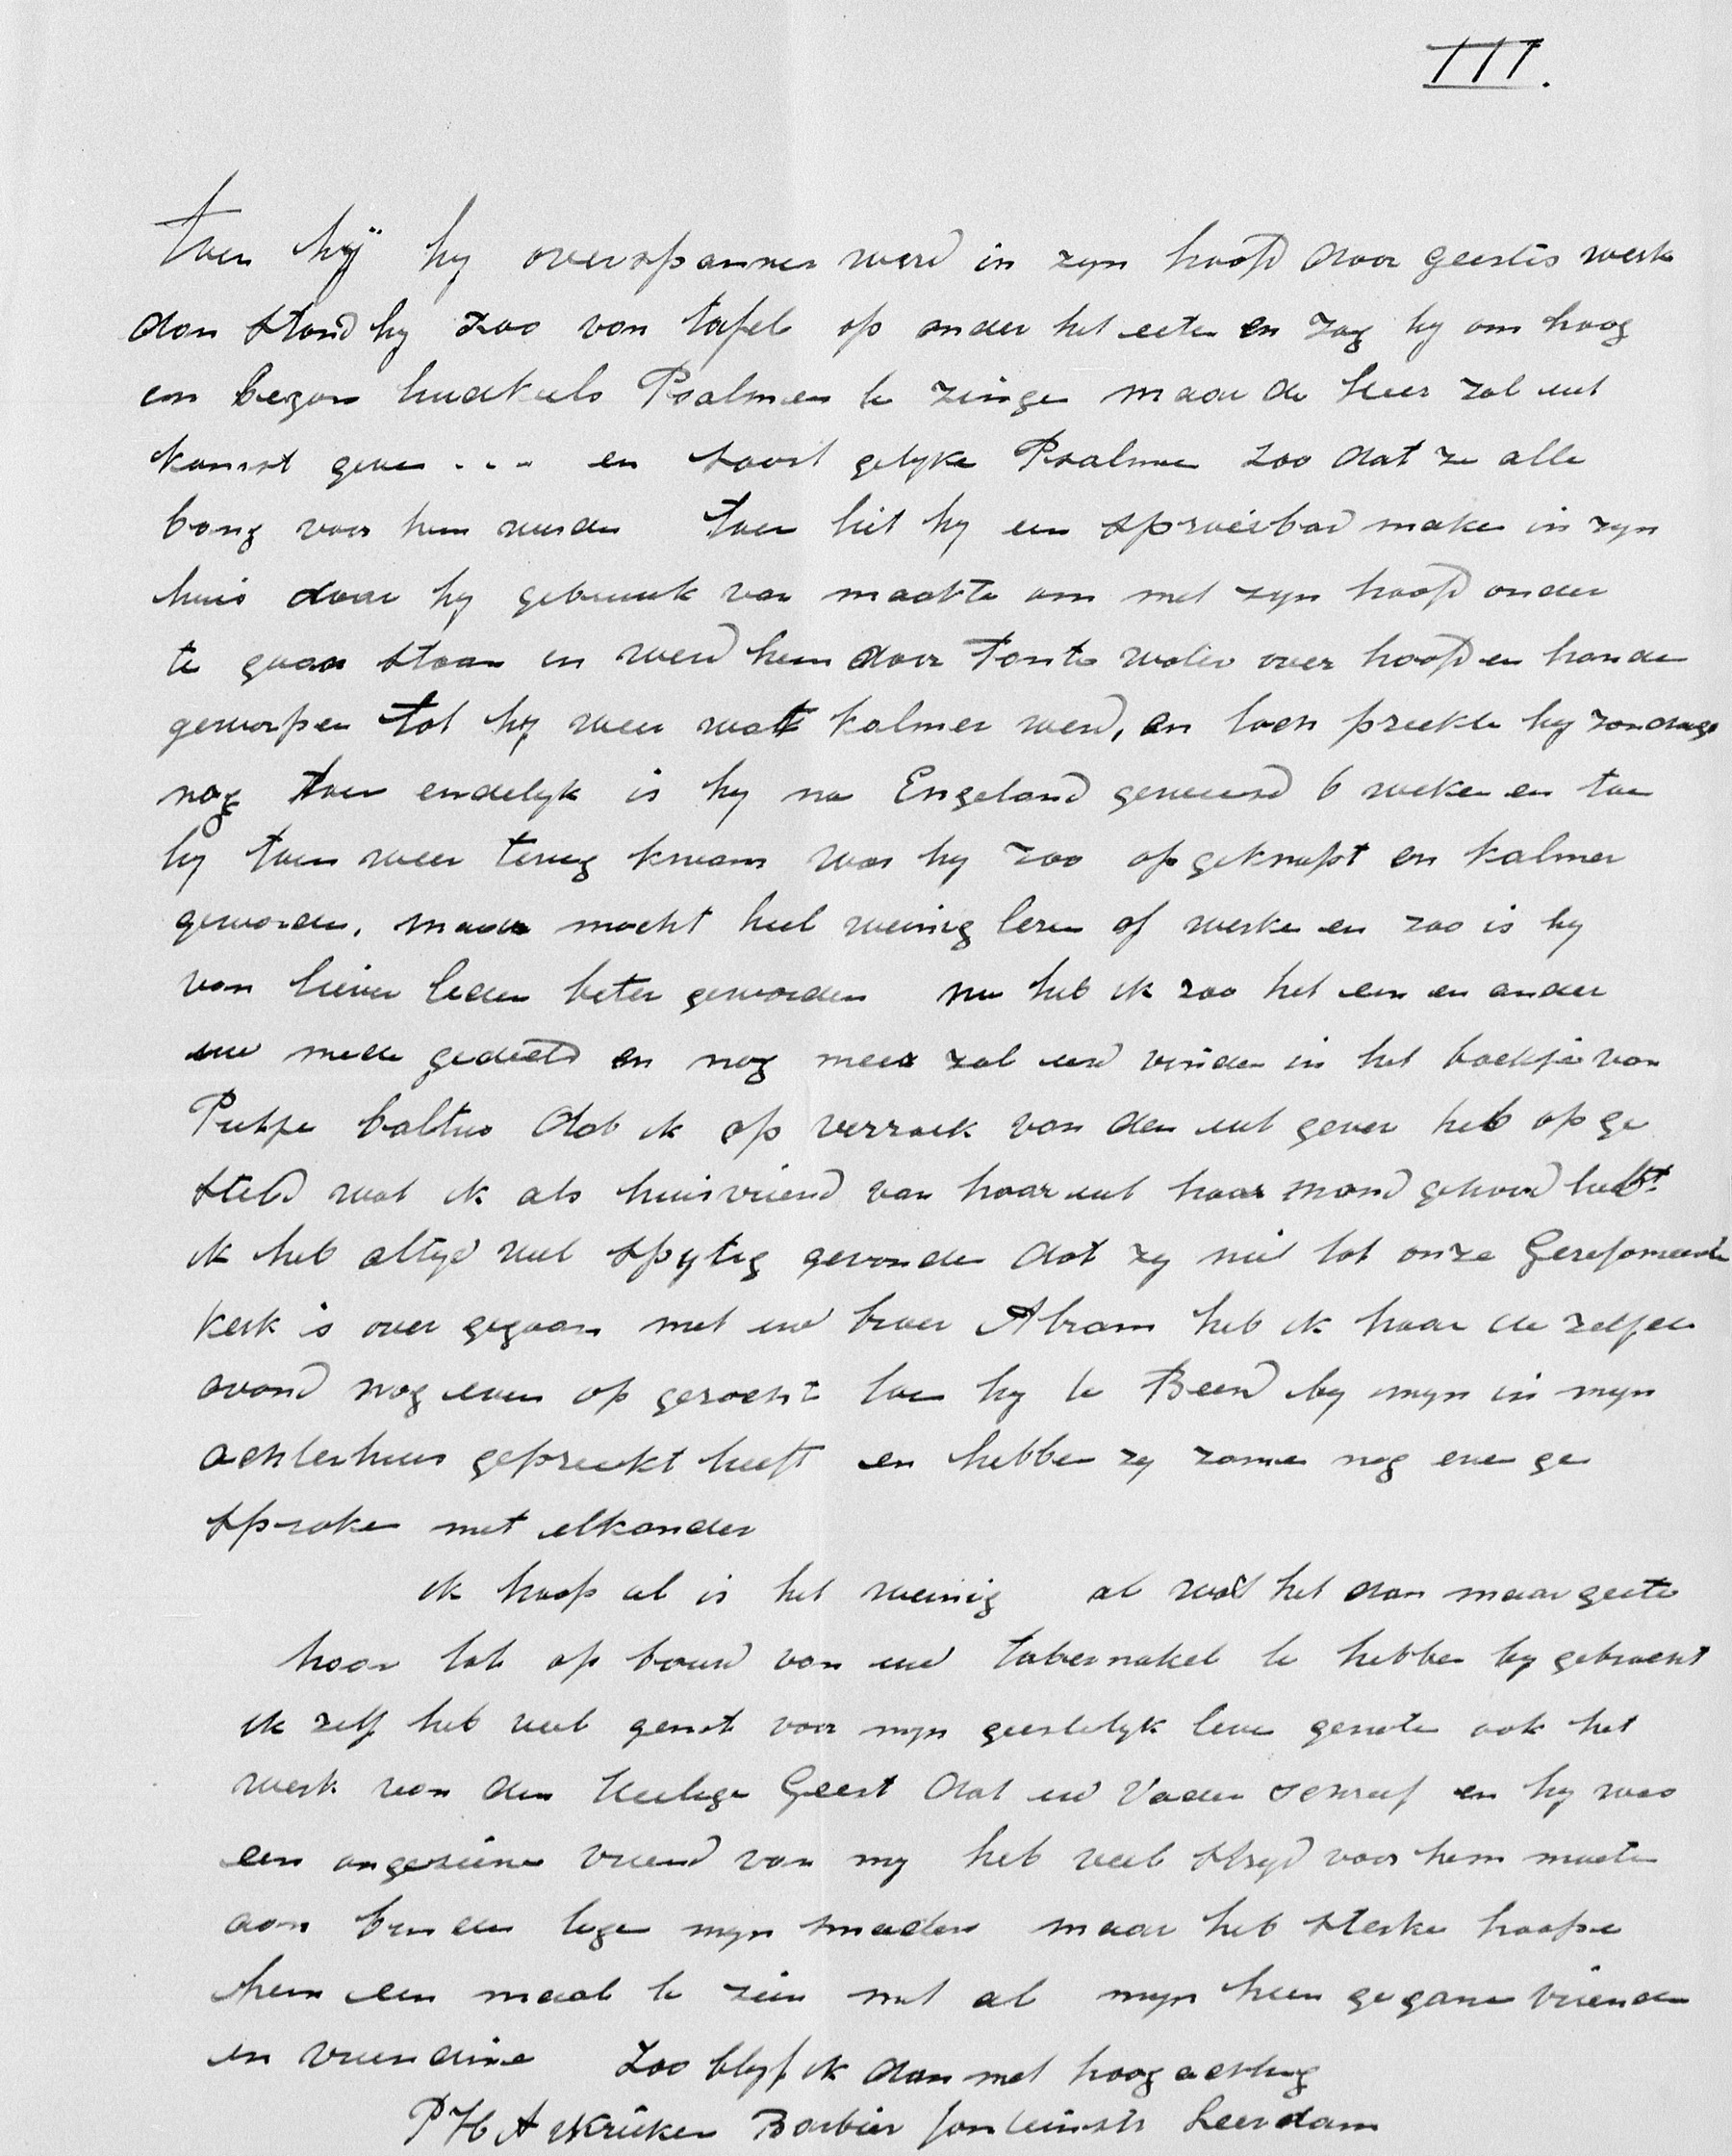 III.
toen hÿ hy overspannen werd in zyn hoofd door geestis werk
dan stond hy zoo van tafel op onder het eeten en zag hy om hoog
en begon luidkeels Psalmen te zinge maar de Heer zal uit
komst geven ... en soort gelyke Psalmen zoo dat ze alle
bang voor hem werden toen liet hy een sproeibad maken in zyn
huis daar hy gebruik van maakte om met zyn hoofd onder
te gaan staan en werd hem door Tante water over hoofd en handen
geworpen tot hy weer wat kalmer werd, en toen preekte hy zondags
nog toen endelyk is hy na Engeland geweesd 6 weken en toe
hy toen weer terug kwam was hy zoo opgeknapt en kalmer
geworden, maar mocht heel weinig lezen of werke en zoo is hy
van liever leden beter geworden nu heb ik zoo het een en ander
uw mede gedeeld en nog meer zal uw vinden in het boekje van
Pietje baltus dat ik op verzoek van den uit gever heb op ge
steld wat ik als huisvriend van haar uit haar mond gehoord hebt
ik heb altyd veel spytig gevonden dat zy niet tot onze Gerefomeerde
kerk is over gegaan met uw broer Abram heb ik haar de zelfde
avond nog even op gezocht toe hy te Beesd by myn in myn
achterhuis gepreekt heeft en hebben zy zamen nog even ge
sproken met elkander
ik hoop al is het weinig al wat het dan maar geete
hoor tot op bouw van uw tabernakel te hebben by gebracht
ik zelf heb veel genot voor myn geestelyk leven genote ook het
werk van den Heilige Geest dat uw Vader schreef en hy was
een angeziene vriend van my heb veel stryd voor hem moeten
aan binden tege myn moeder maar heb sterke hoope
hem een maal te zien met al myn heen gegane vrienden
en vriendine Zoo blyf ik dan met hoog achting
P H A Barbier Leerdam